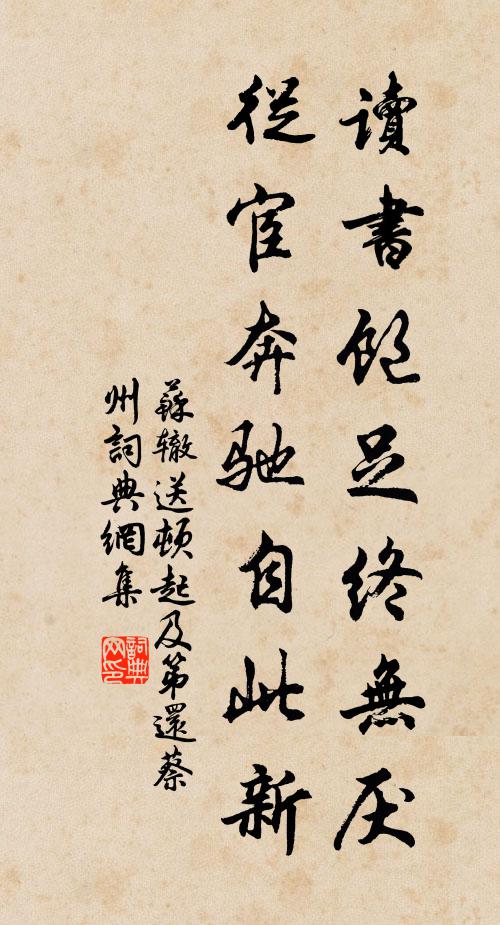 讀書飽足終無厌
從宦奔馳自此新
蘇辙送頓起及第還蔡
州詞典網集
詞典
网印